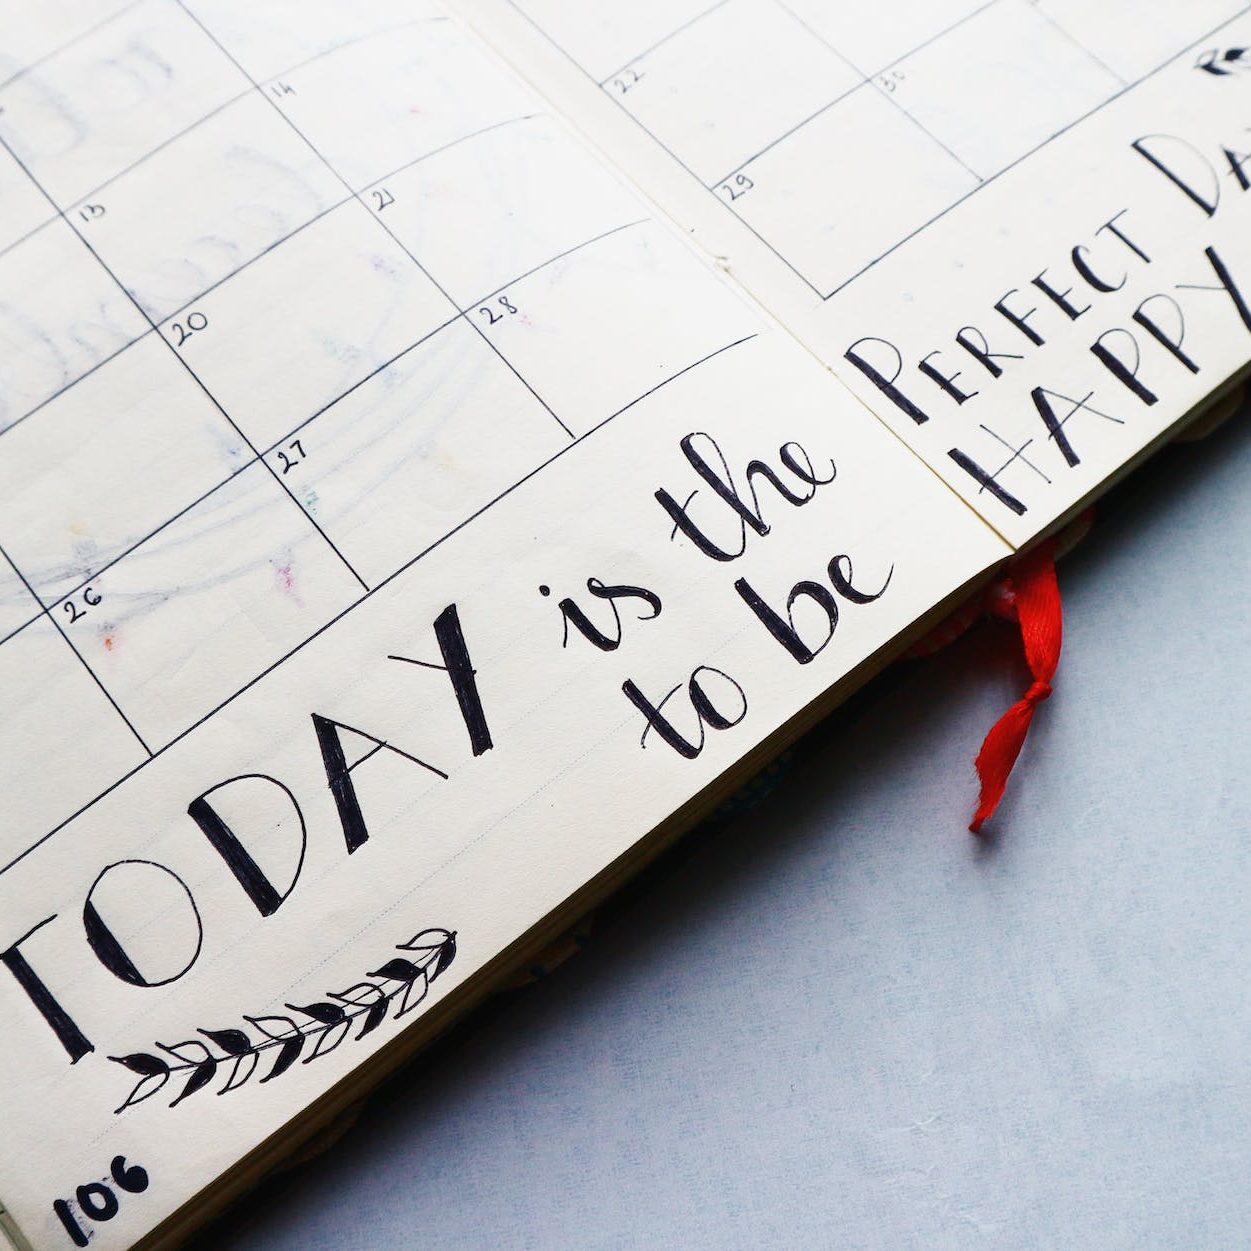 14
13 21
20 28
27
26
22 30
29
TODAY is the
to be
PERFECT DA
HAPPY
106